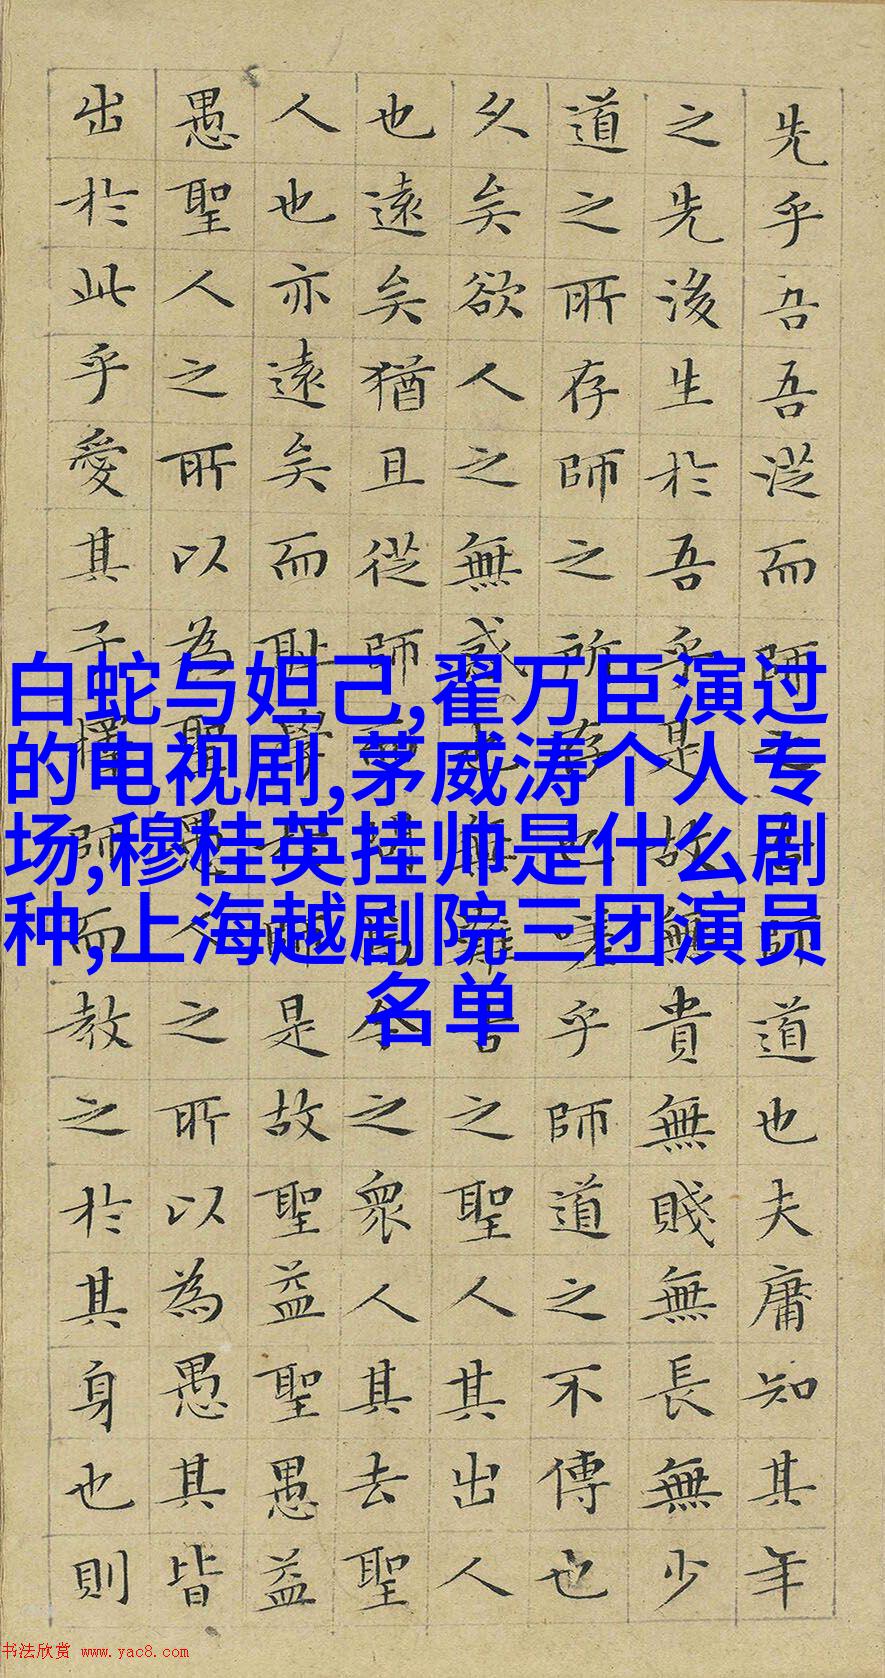 先乎吾吾從而師之吾師道也夫庸知其年
之先後生於吾乎是故無貴無賤無長無少
道之所存師之所存也嗟乎師道之不傳也
久矣欲人之無惑也無難古之聖人其出人
也遠矣猶且從師而問焉今之眾人其去聖
人也亦遠矣而恥學於師是故聖益聖愚益
愚聖人之所以為聖愚人之所以為愚其皆
出於此乎愛其子擇師而教之於其身也則
白蛇与妲己,翟万臣演过
的电视剧,茅威涛个人专
场,穆桂英挂帅是什么剧
种,上海越剧院三团演员
名单
书法欣赏 www.yac8.com